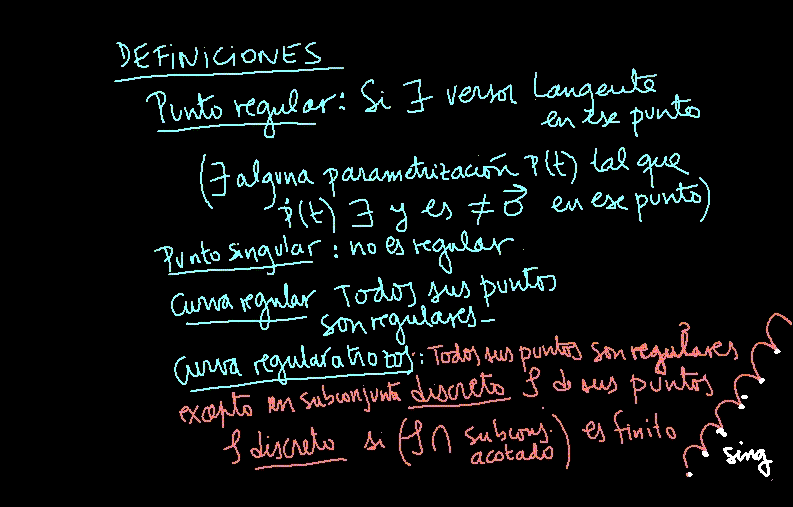 DEFINICIONES
Punto regular: Si ∃ versor tangente
en ese punto
(∃ alguna parametrización P(t) tal que
Ṗ(t) ∃ y es ≠ 0⃗ en ese punto)
Punto singular: no es regular.
Curva regular Todos sus puntos
son regulares_
Curva regular a trozos: Todos sus puntos son regulares
excepto un subconjunto discreto S de sus puntos
S discreto si (S ∩ subconj. acotado) es finito
sing